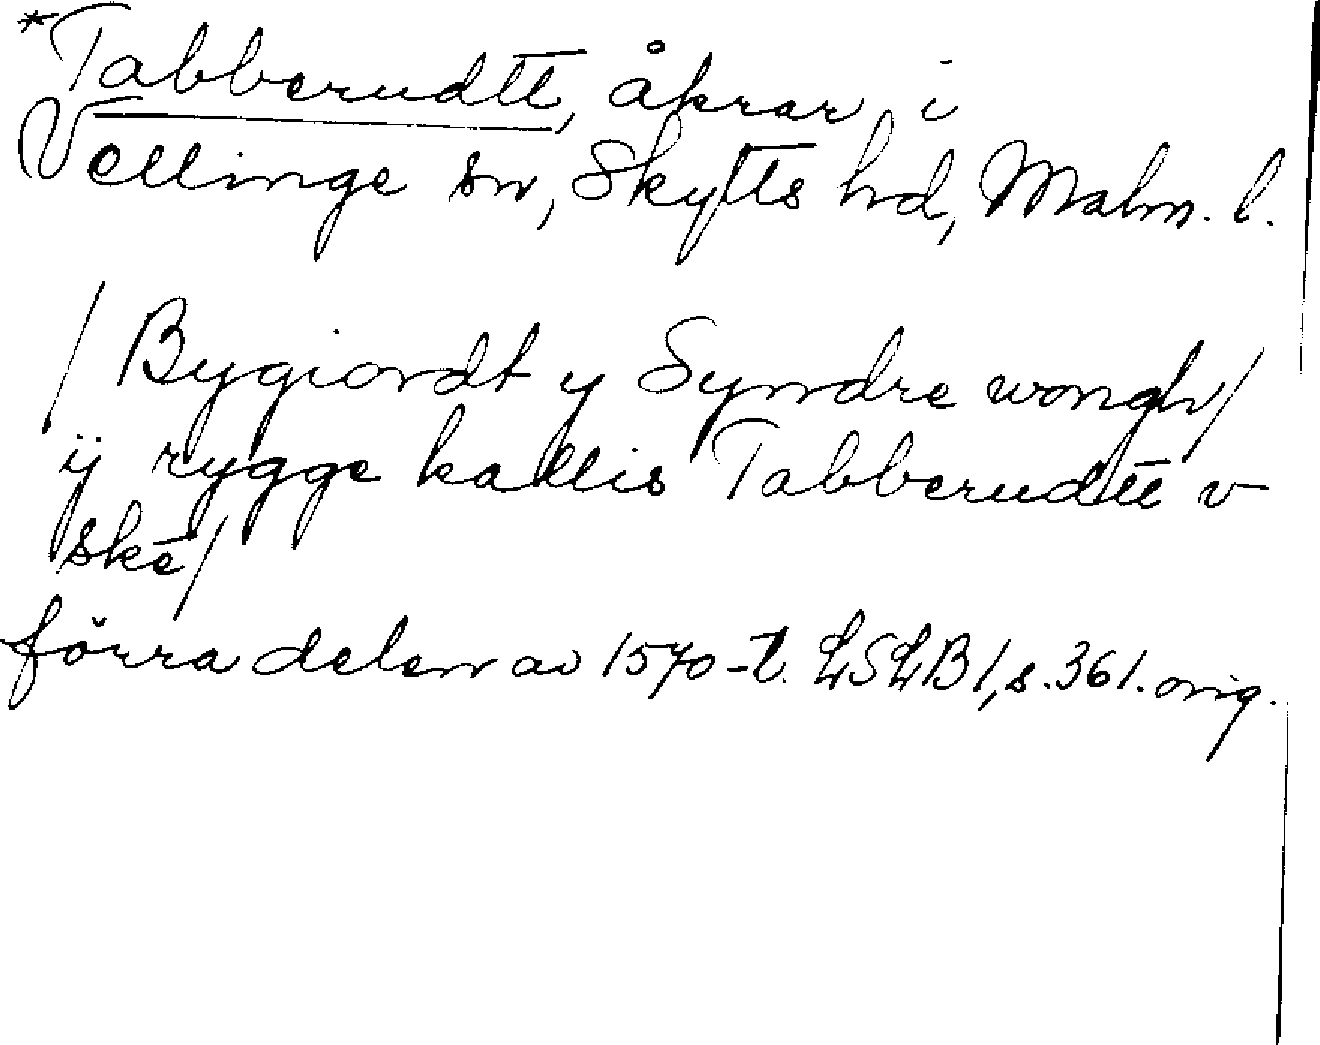 *Tabberudtt, åkrar i
Vellinge sn, Skytts hd, Malm. l.
/ Bygiordt y Syndre wongh/
ij rygge kallis Tabberudtt v
skē/
förra delen av 1570-t. LSLB 1, s. 361. orig.